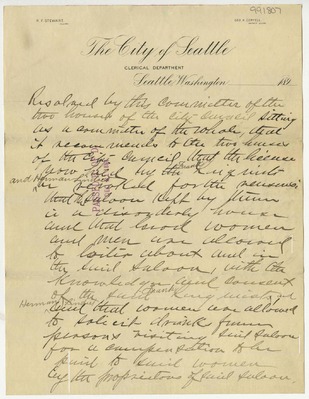 991807
The City of Seattle
CLERICAL DEPARTMENT
Seattle, Washington 189
Resolved by this Committee of the
two houses of the city council sitting
as a committee of the whole, that
it recommends to the two houses
of the City Council that the license
now by the
and Herman
be revoked for the reasons
that the saloon kept by them
is a disorderly house
and that lewd women
and men are allowed
to loiter about and in
the said Saloon, with the
knowledge and consent
of the said Frank
Herman
and that women are allowed
to solicit drinks from
persons visiting said saloon
for a compensation to be
paid to said women
by the proprietors of said saloon.